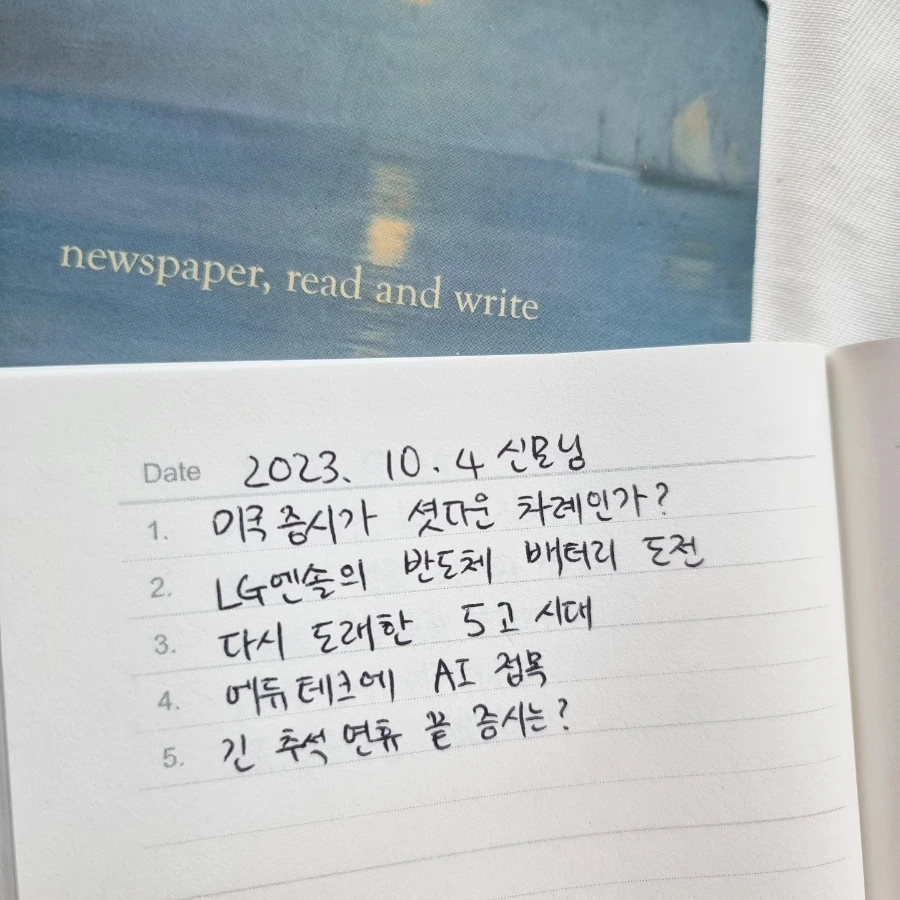 newspaper, read and write
Date 2023. 10. 4 신문님
1. 미국 증시가 셧다운 차례인가?
2. LG엔솔의 반도체 배터리 도전
3. 다시 도래한 5고 시대
4. 에듀테크에 AI 접목
5. 긴 추석 연휴 끝 증시는?